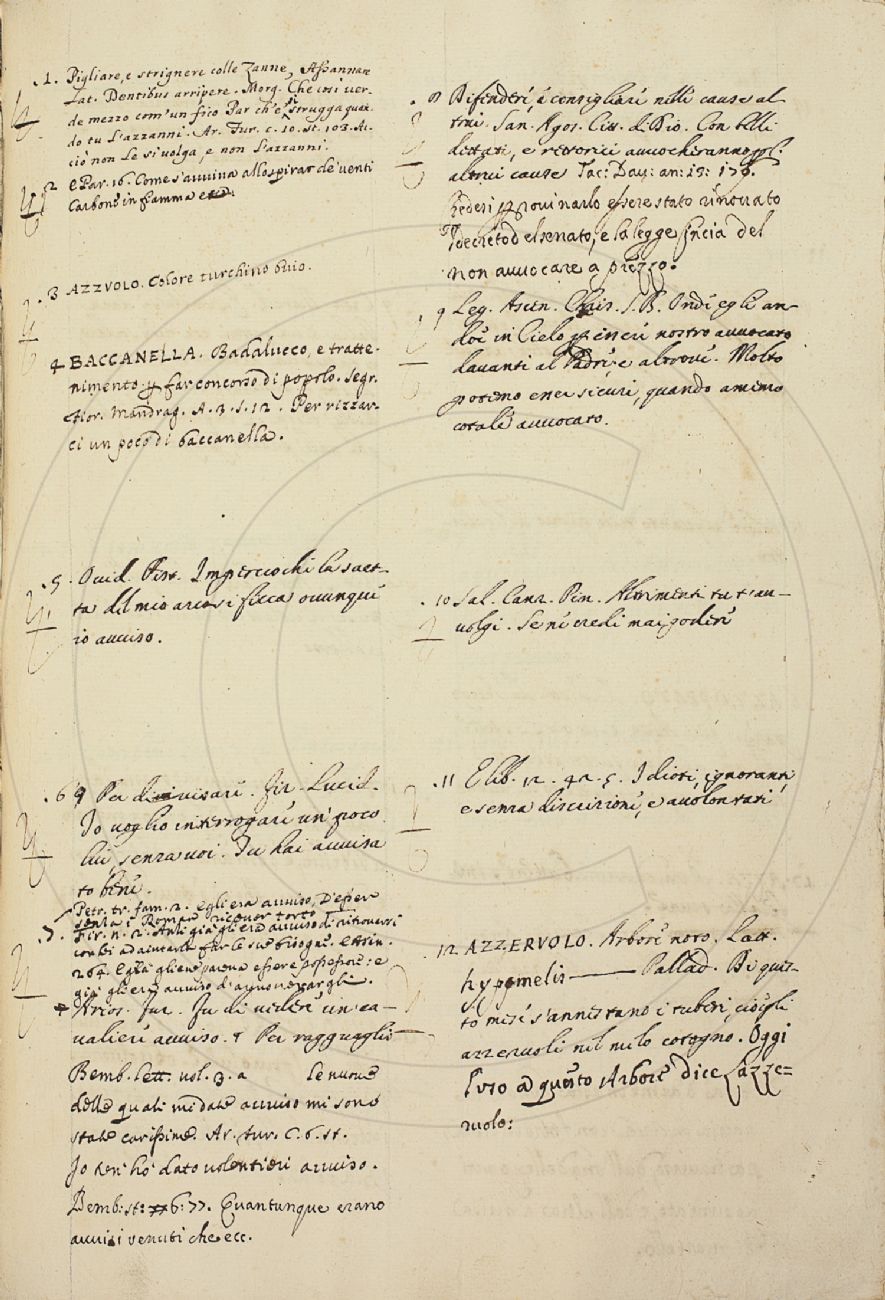 .1. Pigliare, e strignere colle Zanne, Assannare
Lat. Dentibus arripere. Morg. Che così ver-
de mezzo com'un fico Par ch'e' si strugga quan-
do tu l'azzanni. Ar. Fur. c. 10. st. 103. Ac-
ciò non le si volga, e non l'azzanni.
.2 e Par. 16. Come s'avviva allo spirar de' venti
Carbone in fiamma
.3 AZZVOLO. Colore turchino buio.
4 BACCANELLA. Badalucco, e tratte-
nimento p far concorso di popolo. Segr.
Fior. Mandrag. A. 3. s. 12. Per rizzar-
ci un poco di baccanella.
.5. Ovid. Pist. Imperciochè la saet-
ta del mio arco si ficca ovunque
io avviso.
.6 Per divisare. Fir. Lucid.
Io voglio interrogare un poco
lui senza voi. Tu hai avvisa
to bene.
.7. Petr. tr. fam. 2. egli era avviso, D'esser
senza i Romani ricever torto
Fir. n. 2. Anzi già gli era avviso di ritrovarsi
con lei ad aiutarle far le sue bisogne. e Asin.
264. Egli gliene pareva essere possessore: e
già gli era avviso d'
Arios. Fur. Fu di vedere un ca-
valiere avviso. Per ragguaglio
Bemb. lett. vol. 3. a Le nuove
delle quali mi date avviso mi sono
state carissime. Ar. fur. C. 6. st.
Io ten' hò dato volentieri avviso.
Bemb: st: 6: 77. Quantunque erano
avvisi venuti che ecc.
.8 Difendere, e consigliare nelle cause al-
trui. San. Agos. Citt. di Dio. Con belli
dettati, e rettorici avvocheranno
altrui cause Tac: Dav: an: 13: 179.
Vedesi p rovinarlo essere stato rinovato
'l decreto del senato, e la legge Cincia del
non avvocare à prezzo.
.9 Leg. Ascen. Crist. S. B. Onde egli an-
dò in Cielo p essere nostro avvocato
davanti al Padre e altrove. Molto
potemo esser sicuri, quando avemo
cotale avvocato.
.10 Sal. Canz. Pin. Altrimenti tu t'av-
volgi. Se ne credi mai godere
.11 E lib. 12. 42. 5. Idioti, ignoranti
e senza discrizione, e avolontati
.12 AZZERVOLO. Arbore noto. Latt.
hypomelis ——— Pallad. Di ques-
to mese s'annestano i tuberi, cioè gli
azzeruoli nel melo cotogno. Oggi
l'uso a questo Arbore dice Lazze=
ruolo: